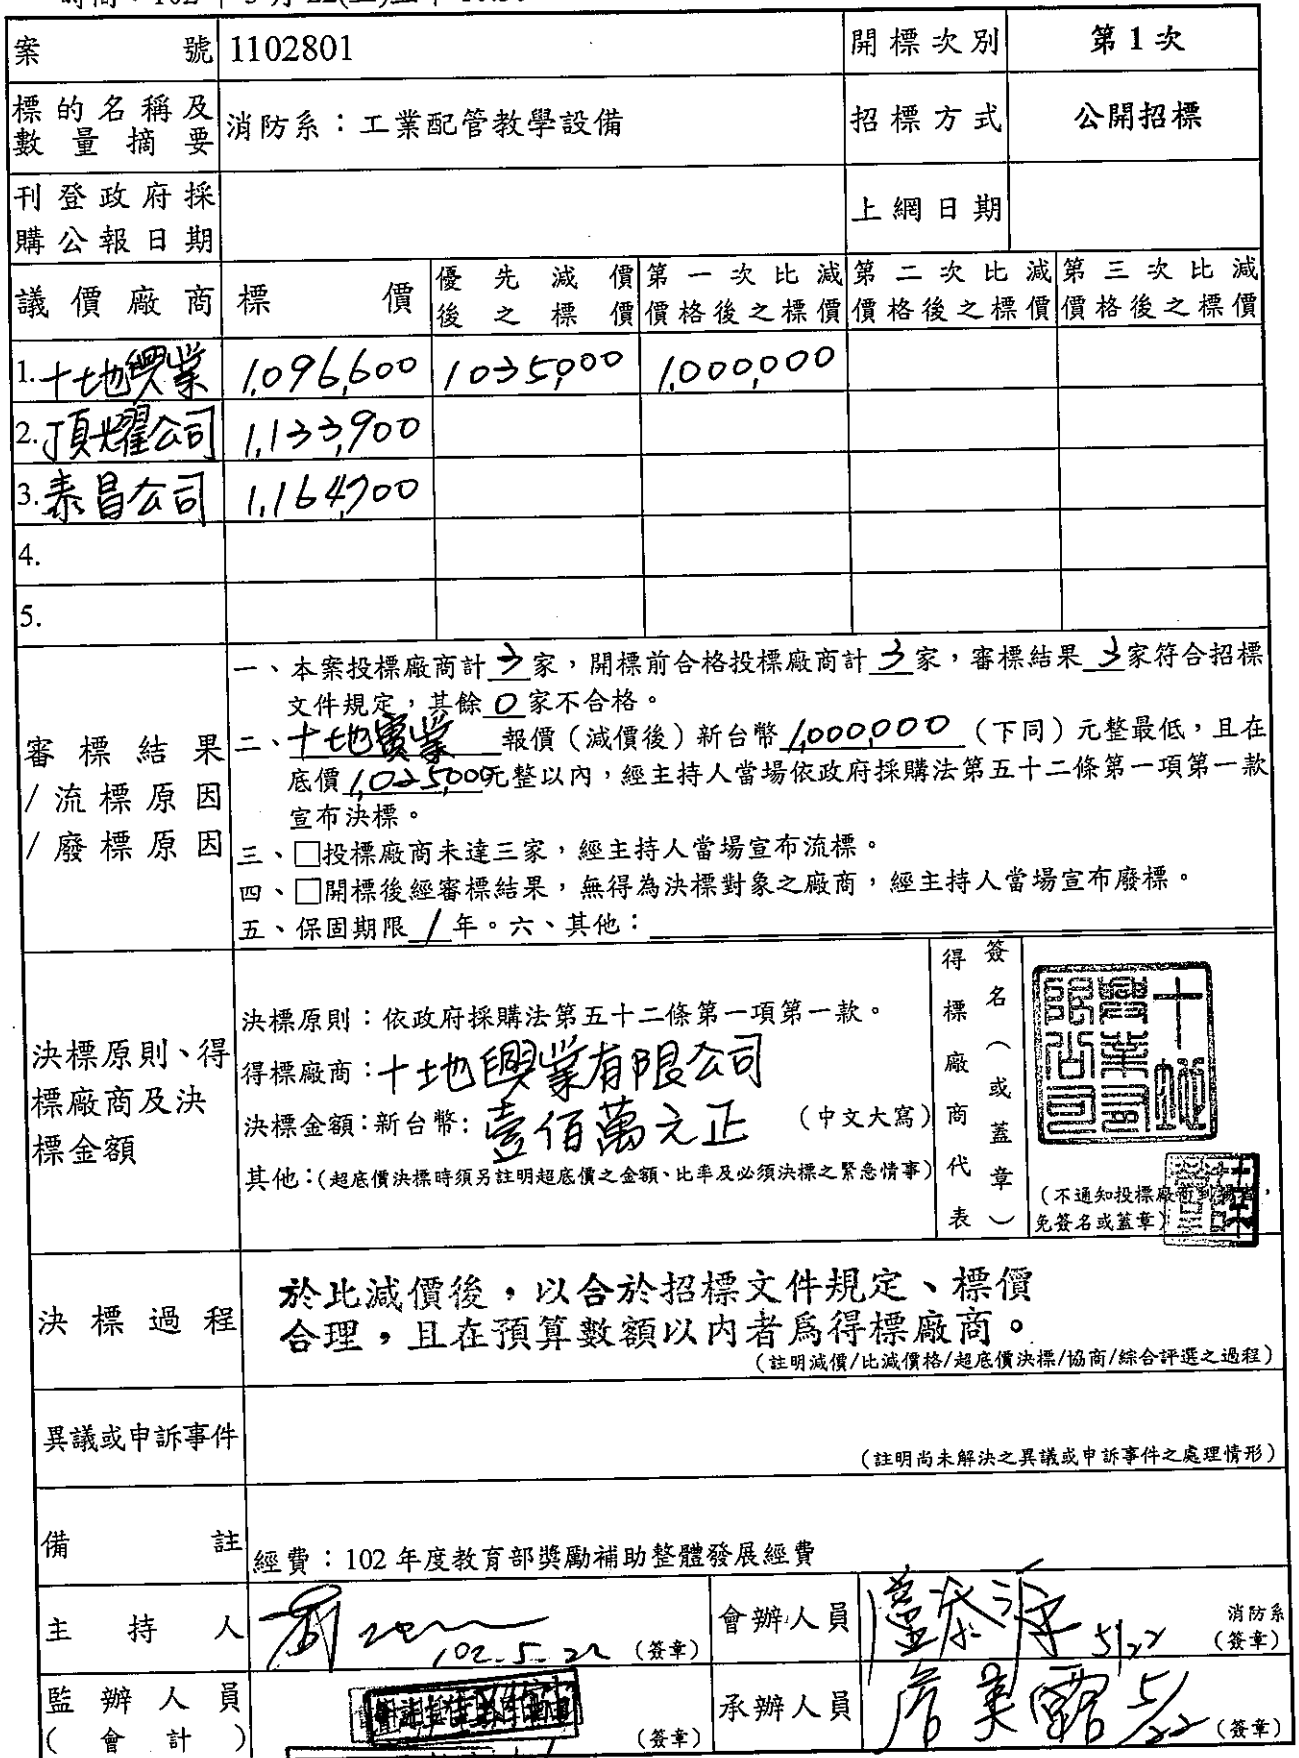 案號 1102801 開標次別 第1次
標的名稱及數量摘要 消防系：工業配管教學設備 招標方式 公開招標
刊登政府採購公報日期 上網日期
議價廠商 標價 優先減價後之標價 第一次比減價格後之標價 第二次比減價格後之標價 第三次比減價格後之標價
1.十地興業 1,096,600 1035,000 1,000,000
2.頂燿公司 1,133,900
3.泰昌公司 1,164,700
4.
5.
審標結果/流標原因/廢標原因
一、本案投標廠商計 3 家，開標前合格投標廠商計 3 家，審標結果 3 家符合招標
文件規定，其餘 0 家不合格。
二、十地實業 報價（減價後）新台幣 1,000,000 （下同）元整最低，且在
底價 1,025,000 元整以內，經主持人當場依政府採購法第五十二條第一項第一款
宣布決標。
三、□投標廠商未達三家，經主持人當場宣布流標。
四、□開標後經審標結果，無得為決標對象之廠商，經主持人當場宣布廢標。
五、保固期限 1 年。六、其他：
決標原則、得標廠商及決標金額
決標原則：依政府採購法第五十二條第一項第一款。
得標廠商：十地興業有限公司
決標金額：新台幣：壹佰萬元正 （中文大寫）
其他：（超底價決標時須另註明超底價之金額、比率及必須決標之緊急情事）
得標廠商代表
簽名（或蓋章）
十地興業有限公司
（不通知投標廠商到場者，
免簽名或蓋章）
決標過程
於比減價後，以合於招標文件規定、標價
合理，且在預算數額以內者為得標廠商。
（註明減價/比減價格/超底價決標/協商/綜合評選之過程）
異議或申訴事件
（註明尚未解決之異議或申訴事件之處理情形）
備註 經費：102 年度教育部獎勵補助整體發展經費
主持人 102.5.22 （簽章） 會辦人員 5/22 消防系（簽章）
監辦人員（會計） （簽章） 承辦人員 5/22 （簽章）